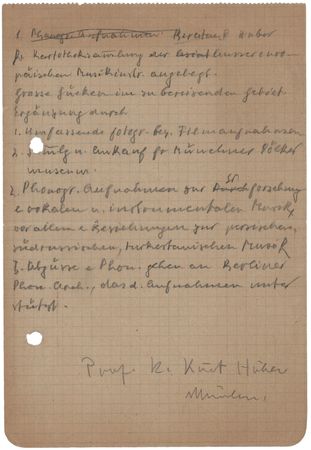 1. Phonogr. Aufnahmen. Bereitend Huber
für Kartotheksammlung der aussereuro-
päischen Musikinstr. angelegt.
Grosse Lücken im zu bereisenden Gebiet
Ergänzung durch
1. Umfassende fotogr. bez. Filmaufnahmen
2. Sammlg u. Einkauf für Münchner Völker
museum.
2. Phonogr. Aufnahmen zur Erforschung
e vokalen u. instrumentalen Musik,
vor allem e Beziehungen zur persischen,
südrussischen, turkestanischen Musik
3. Abgüsse e Phon. gehen an Berliner
Phon. Arch., das d. Aufnahmen unter
stützt.
Prof. K. Kurt Huber
München.